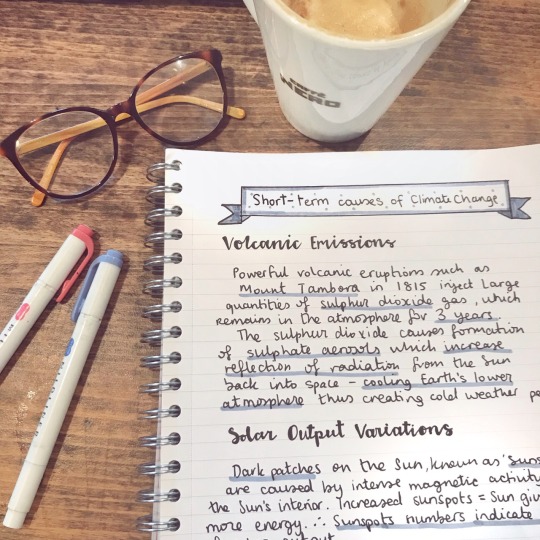 CAFFÈ
NERO
Short-term causes of Climate Change
Volcanic Emissions
Powerful volcanic eruptions such as
Mount Tambora in 1815 inject Large
quantities of sulphur dioxide gas, which
remains in the atmosphere for 3 years.
The sulphur dioxide causes formation
of sulphate aerosols which increase
reflection of radiation from the Sun
back into space - cooling Earth's lower
atmosphere thus creating cold weather pe
Solar Output Variations
Dark patches on the Sun, known as 'Suns
are caused by intense magnetic activity
the Sun's interior. Increased sunspots = Sun giv
more energy. ∴ Sunspots numbers indicate
output